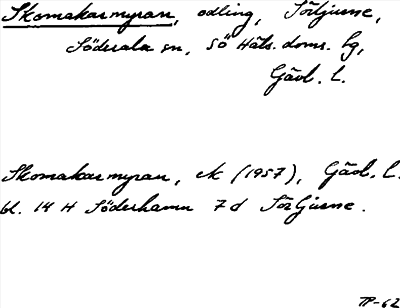 Skomakarmyran, odling, Sörljusne,
Söderala sn, Sö Häls. doms. lg,
Gävl. l.
Skomakarmyran, ek (1957), Gävl. l.
bl. 14 H Söderhamn 7d Sörljusne.
TP-62